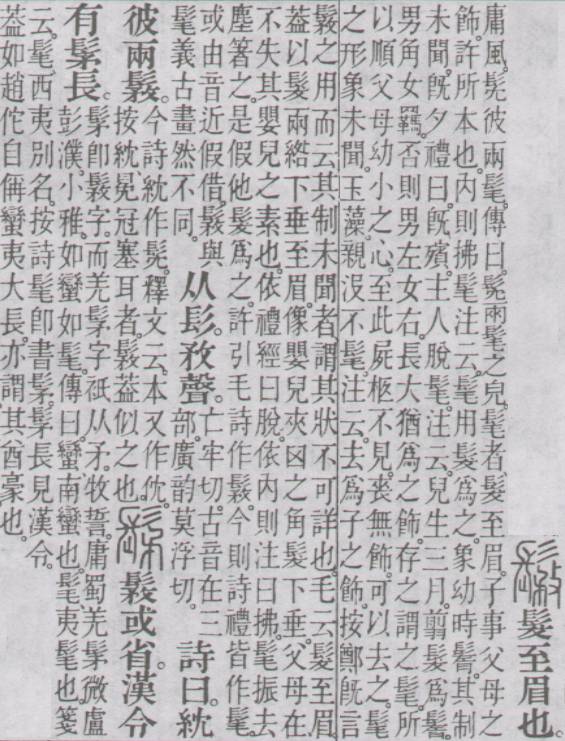 𩭾髮至眉也。
庸風。髧彼兩髦。傳曰。髧兩髦之皃。髦者髮至眉。子事父母之
飾。許所本也。內則拂髦注云。髦用髮爲之。象幼時鬌。其制
未聞。旣夕禮曰。旣殯。主人脫髦。注云。兒生三月。翦髮爲鬌。
男角女羈。否則男左女右。長大猶爲之飾存之。謂之髦。所
以順父母幼小之心。至此屍柩不見。喪無飾。可以去之。髦
之形象未聞。玉藻。親沒不髦。注云。去爲子之飾。按鄭旣言
𩭾之用而云其制未聞者。謂其狀不可詳也。毛云髮至眉。
葢以髮兩綹下垂至眉。像嬰兒夾囟之角髮下垂。父母在
不失其嬰兒之素也。依禮經曰脫。依內則注曰拂。髦振去
塵箸之。是假他髮爲之。許引毛詩作𩭾。今則詩禮皆作髦。
或由音近假借。𩭾與
髦義古畫然不同。
从髟敄聲。
亡牢切。古音在三
部。廣韵莫浮切。
詩曰紞
彼兩𩭾。
今詩紞作髧。釋文云。本又作
按紞。冕冠塞耳者。𩭾葢似之也。
髳𩭾或省。漢令
有髳長。
髳卽𩭾字。而羌髳字祇从矛。牧誓。庸蜀羌髳微盧
彭濮。小雅。如蠻如髦。傳曰。蠻南蠻也。髦夷髦也。箋
云。髦西夷別名。按詩髦卽書髳。髳長見漢令。
葢如趙佗自偁蠻夷大長。亦謂其酋豪也。